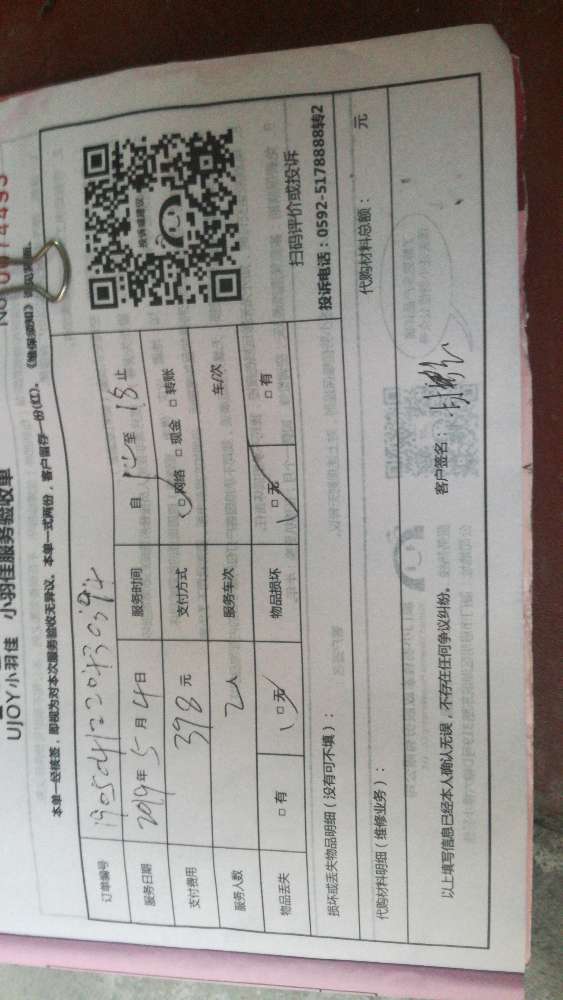 UJOY小羽佳 小羽佳服务验收单
本单一经核签，即视为对本次服务验收无异议。本单一式两份，客户留存一份(红)。《维保须知》
订单编号
服务日期 2019年5月4日 服务时间 自 14 至 18 止
支付费用 398元 支付方式 □网络 □现金 □转账
服务人数 2人 服务车次 车/次
物品丢失 □有 □无 物品损坏 □无 □有
投诉或建议
扫码评价或投诉
投诉电话：0592-5178888转2
损坏或丢失物品明细（没有可不填）：
代购材料明细（维修业务）： 代购材料总额： 元
以上填写信息已经本人确认无误，不存在任何争议纠纷。 客户签名：